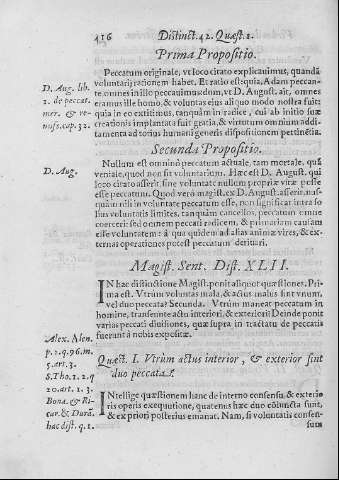 416 Distinct. 42. Quæst. 1.
Prima Propositio.
Peccatum originale, vt loco citato explicauimus, quandã
voluntarij rationem habet. Et ratio est: quia, Adam peccan-
te omnes in illo peccauimus: dum, vt D. August. ait, omnes
eramus ille homo, & voluntas eius aliquo modo nostra fuit:
quia in eo extitimus, tanquàm in radice, cui ab initio suæ
creationis implantata fuit gratia, & virtutum omnium addi-
tamenta ad totius humani generis dispositionem pertinẽtia.
D. Aug. lib.
1. de peccat.
mer. & re-
miss. cap. 32.
Secunda Propositio.
D. Aug.
Nullum est omninò peccatum actuale, tam mortale, quã
veniale, quod non sit voluntarium. Hæc est D. August. qui
loco citato asserit, sine voluntate nullum propriè vitæ posse
esse peccatum. Quod verò magist. ex D. August. asserit, nus-
quàm nisi in voluntate peccatum esse, non significat intra so-
lius voluntatis limites, tanquàm cancellos, peccatum omne
coerceri: sed omnem peccati radicem, & primariam causam
esse voluntatem: à qua quidem ad alias animæ vires, & ex-
ternas operationes potest peccatum deriuari.
Magist. Sent. Dist. XLII.
IN hac distinctione Magist. ponit aliquot quæstiones. Pri-
ma est. Vtrùm voluntas mala, & actus malus sint vnum,
vel duo peccata? Secunda. Vtrùm maneat peccatum in
homine, transeunte actu interiori, & exteriori? Deinde ponit
varias peccati diuisiones, quæ supra in tractatu de peccatis
fuerunt à nobis expositæ.
Quæst. I. Vtrùm actus interior, & exterior sint
duo peccata?
Alex. Alen.
p. 2. q. 96. m.
3. art. 3.
S. Tho. 1. 2. q
20. art. 1. 3.
Bona. & Ri-
car. & Durã.
hac dist. q. 1.
INtellige quæstionem hanc de interno consensu, & exterio
ris operis exequutione, quatenus hæc duo cõiuncta sunt,
& ex priori posterius emanat. Nam, si voluntatis consen-
sum